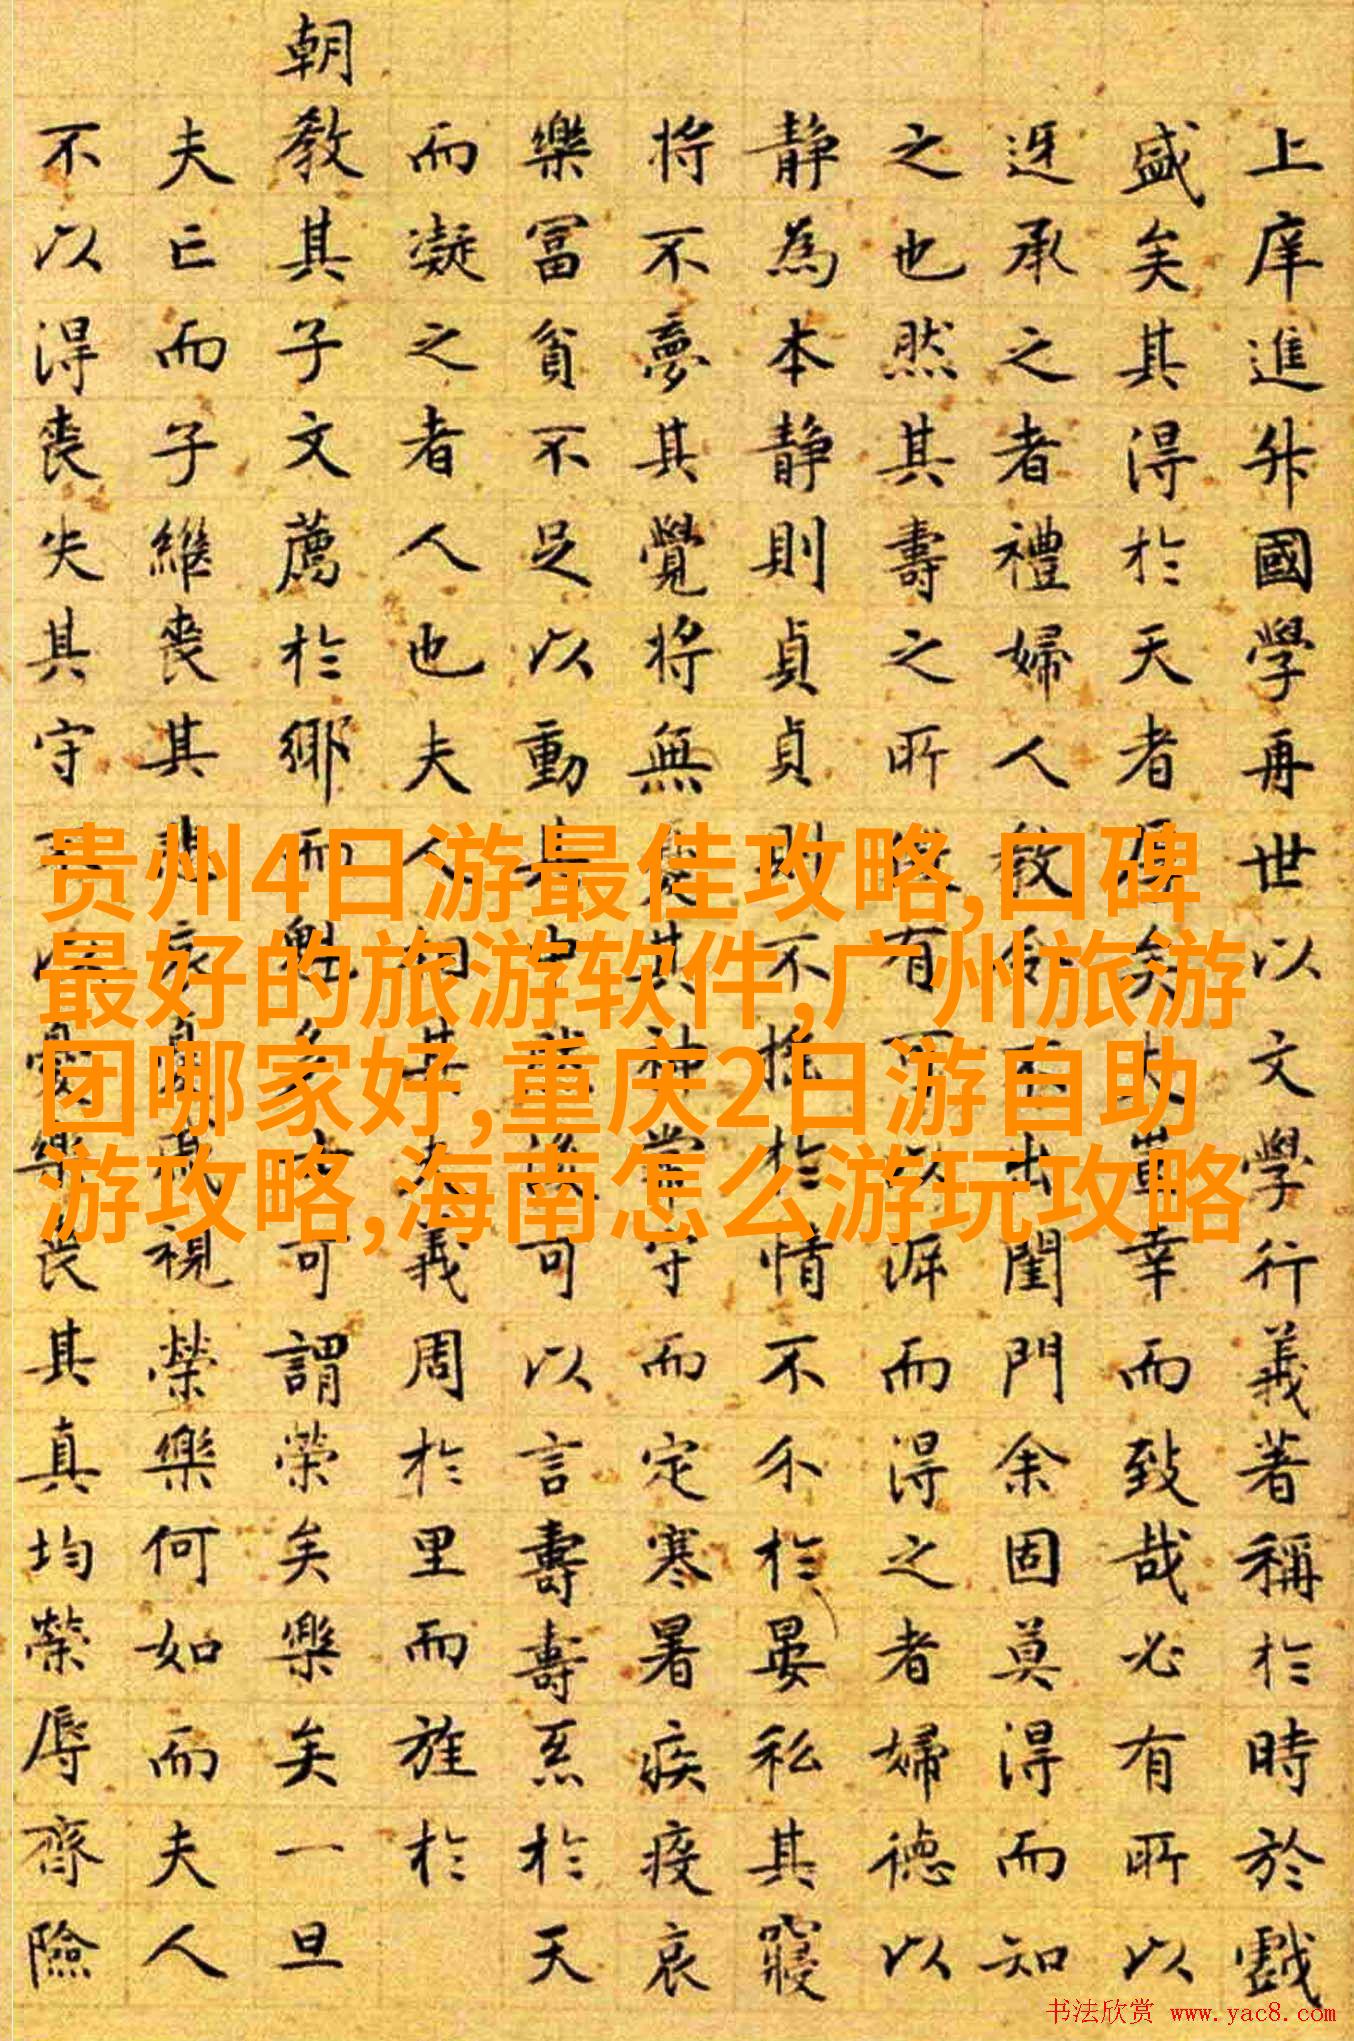 上庠進升國學再世以文學行義著稱於時於戲
盛矣其得於天者厚矣夫豈幸而致哉必有所以
迓承之者禮婦人教令不出閨門余固莫得而知
之也然其壽之所從有可以涯而得之者婦德以
静為本静則貞貞助不搖於情不介於晏私其寢
將不夢其覺將無憂其神常守而定寒暑疾疫哀
樂冨貧不足以動其中然後可以言壽壽系於天
而凝之者人也夫人相其夫義周於里而旌於
朝教其子文薦於鄉而魁多士可謂榮矣樂矣一旦
夫亡而子繼喪其悲哀戚視榮樂何如而夫人
不以得喪失其守不以憂樂喪其真均榮辱齊險
贵州4日游最佳攻略,口碑
最好的旅游软件,广州旅游
团哪家好,重庆2日游自助
游攻略,海南怎么游玩攻略
书法欣赏 www.yac8.com